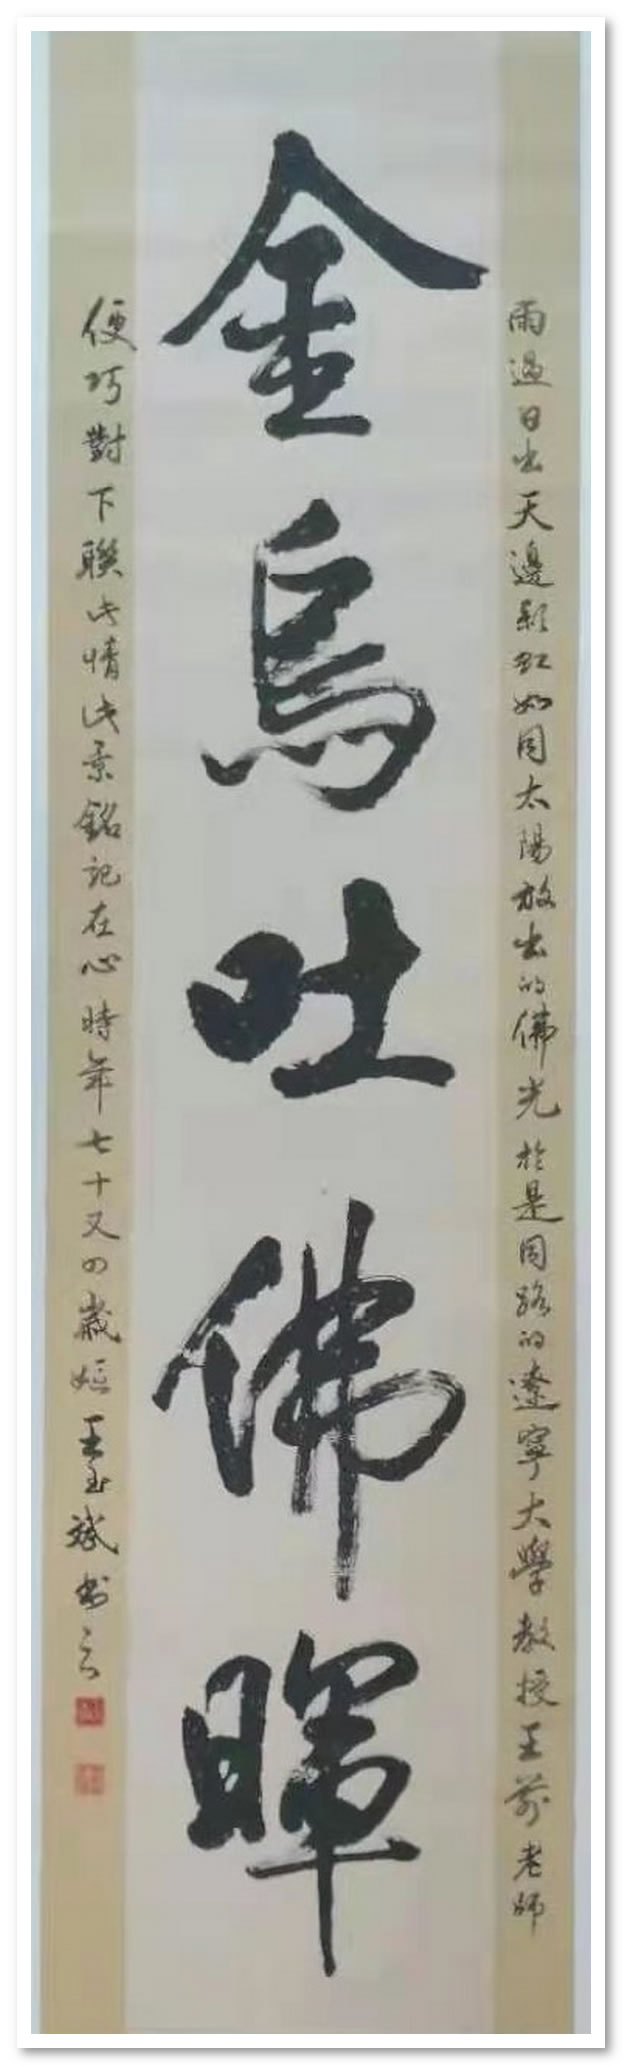 雨過日出天邊彩虹如同太陽放出的佛光於是同路的遼寧大學教授王前老師
金烏吐佛暉
便巧對下聯此情此景銘記在心時年七十又四歲嫗王玉斌書之